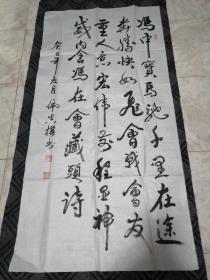 冯中宝马驰千里在途
奔腾快如飞会战会友
重人意宏伟前程显神
威内含冯在会藏头诗
癸巳年 五月